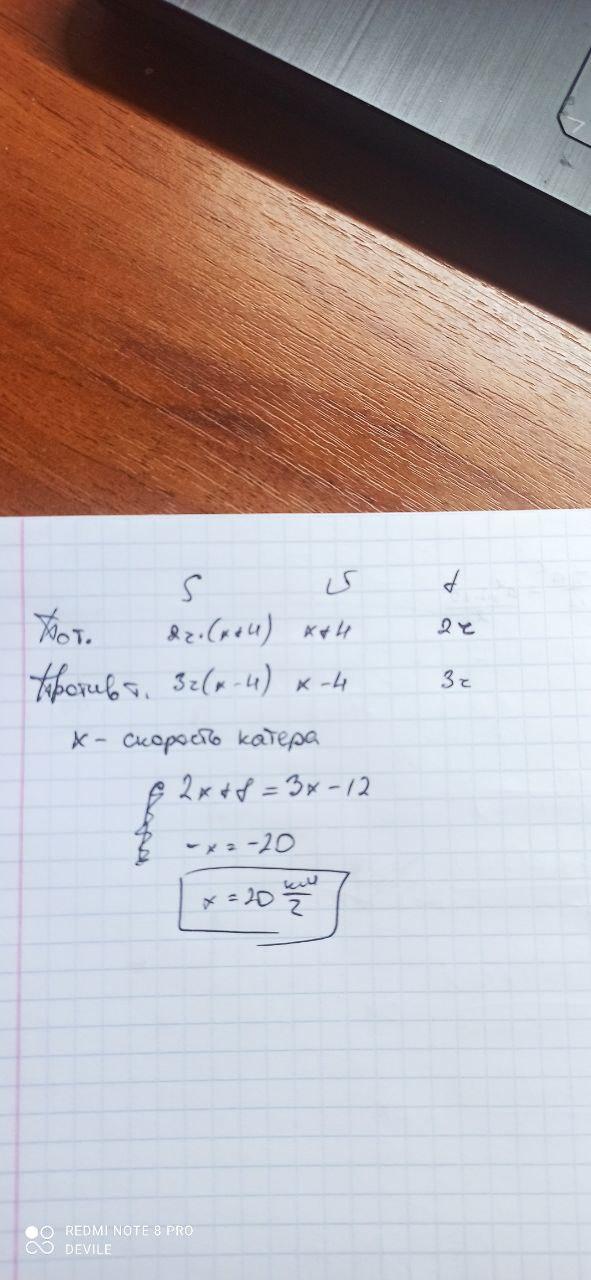 S V t
По т. 2ч·(x+4) x+4 2ч
Против т. 3ч(x-4) x-4 3ч
x - скорость катера
2x+8=3x-12
-x=-20
x=20 км/ч
REDMI NOTE 8 PRO
DEVILE